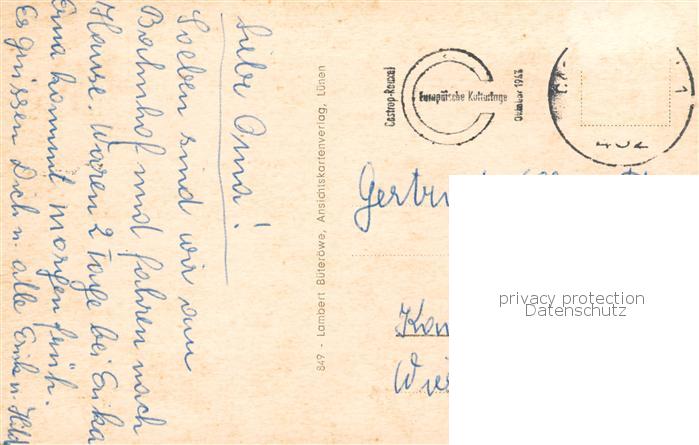 Liebe Oma!
Soeben sind wir am
Bahnhof und fahren nach
Hause. Waren 2 Tage bei Erika
Erna kommt morgen früh.
Es grüssen Dich u. alle Erika u.
849 - Lambert Büteröwe, Ansichtskartenverlag, Lünen
Castrop-Rauxel
Europäische Kulturtage
Oktober
1
Gertru
Kam
Wie
privacy protection
Datenschutz